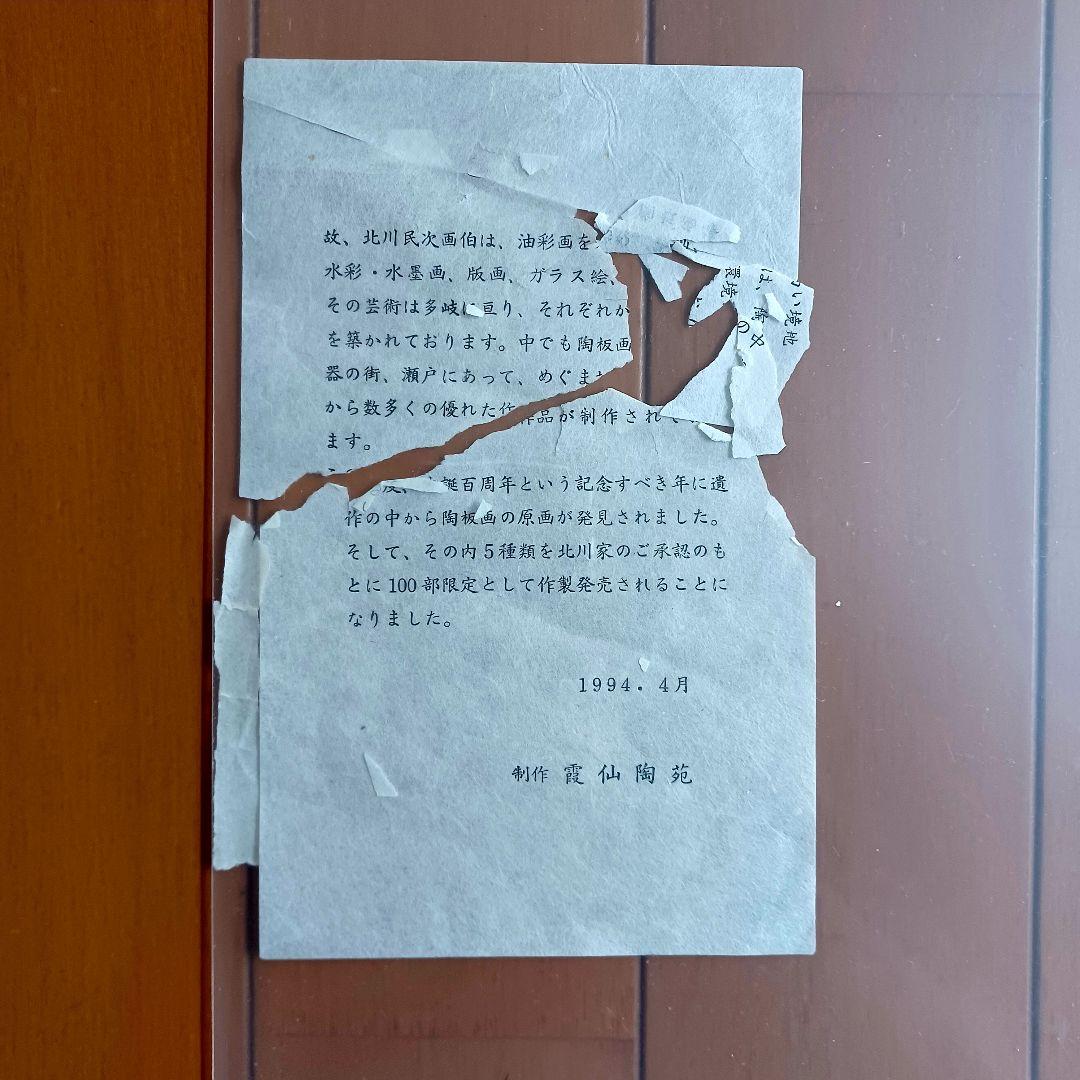 故、北川民次画伯は、油彩画を
水彩・水墨画、版画、ガラス絵、
その芸術は多岐に亘り、それぞれか
を築かれております。中でも陶板画
器の街、瀬戸にあって、めぐま
から数多くの優れた作品が制作されて
ます。
誕百周年という記念すべき年に遺
作の中から陶板画の原画が発見されました。
そして、その内5種類を北川家のご承認のも
とに100部限定として作製発売されることに
なりました。
1994.4月
制作 霞仙陶苑
い境地
は、陶
環境
の中